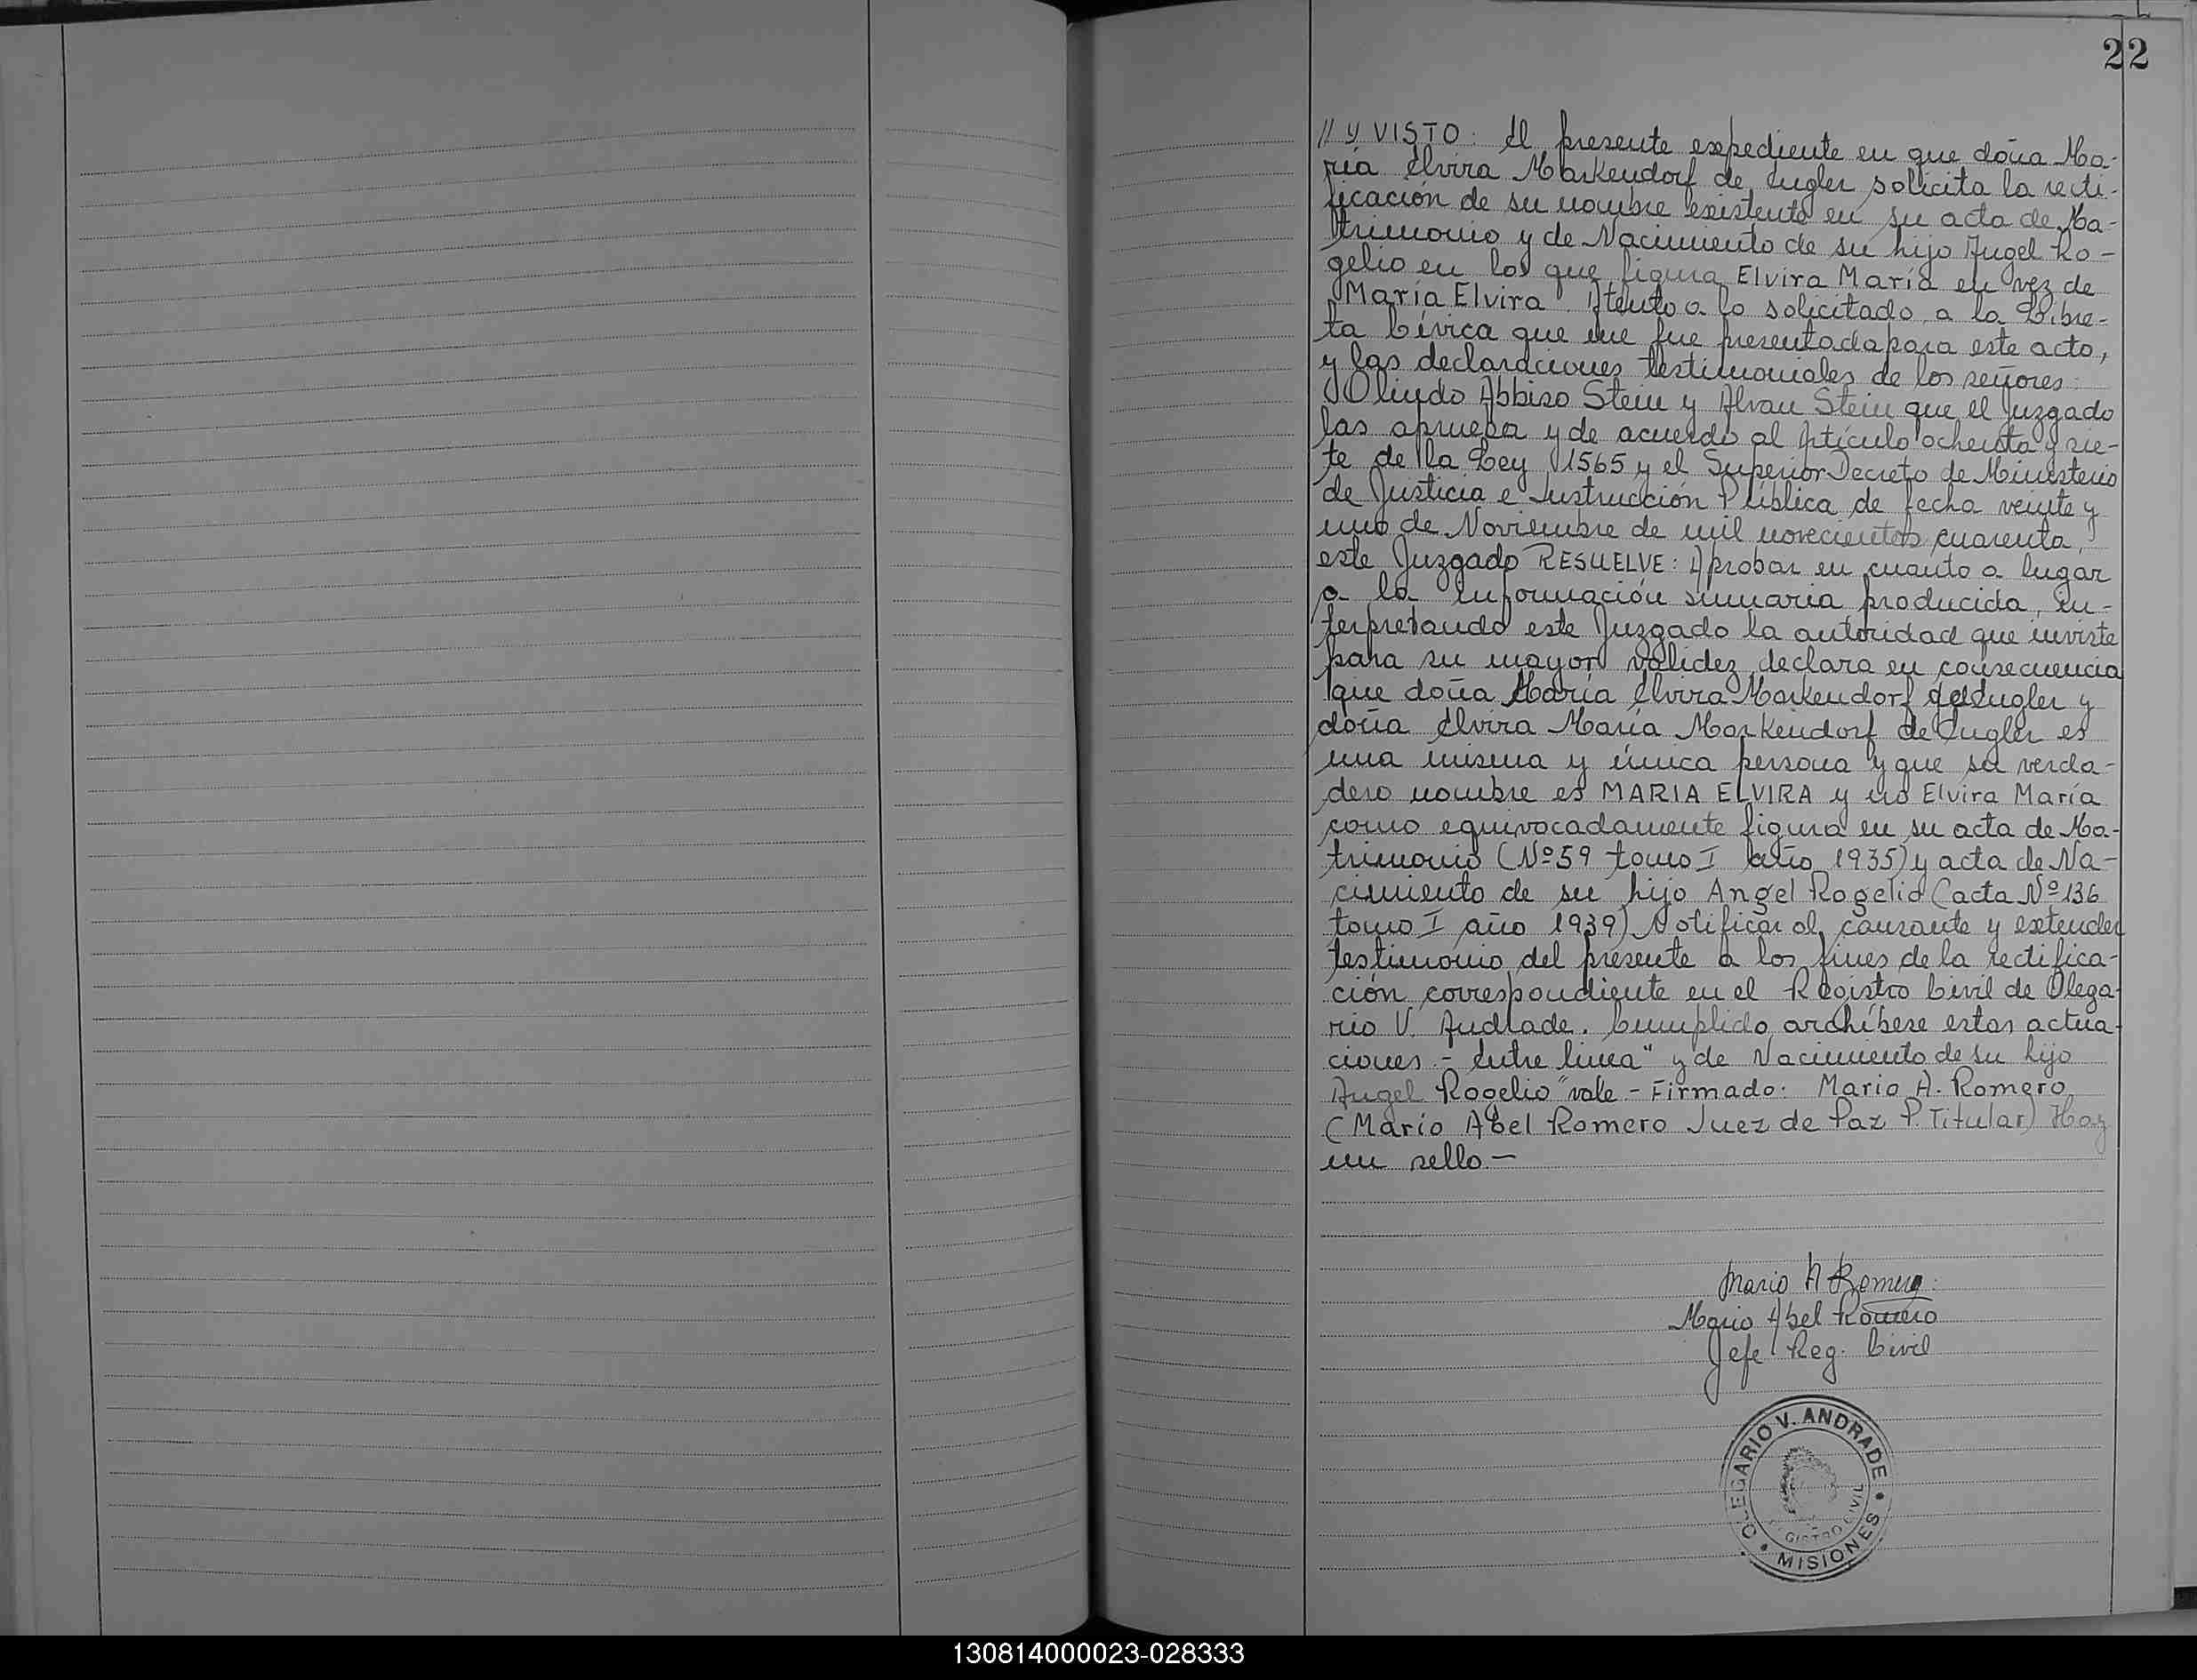 22
// Y VISTO: El presente expediente en que doña Ma-
ría Elvira Markendorf de Engler solicita la recti-
ficación de su nombre existente en su acta de Ma-
trimonio y de Nacimiento de su hijo Angel Ro-
gelio en los que figura Elvira María en vez de
María Elvira. Atento a lo solicitado, a la Libre-
ta Cívica que me fue presentada para este acto,
y las declaraciones testimoniales de los señores:
Olindo Stein y Alvan Stein que el Juzgado
las aprueba y de acuerdo al Artículo ochenta y sie-
te de la Ley 1565 y el Superior Decreto de Ministerio
de Justicia e Instrucción Pública de fecha veinte y
uno de Noviembre de mil novecientos cuarenta,
este Juzgado RESUELVE: Aprobar en cuanto a lugar
a la información sumaria producida, in-
terpretando este Juzgado la autoridad que inviste
para su mayor validez declara en consecuencia
que doña María Elvira Markendorf de Engler y
doña Elvira María Markendorf de Engler es
una misma y única persona y que su verda-
dero nombre es MARIA ELVIRA y no Elvira María
como equivocadamente figura en su acta de Ma-
trimonio (Nº 59 tomo I año 1935) y acta de Na-
cimiento de su hijo Angel Rogelio (acta Nº 136
tomo I año 1939) Notificar al causante y extender
testimonio del presente a los fines de la rectifica-
ción correspondiente en el Registro Civil de Olega-
rio V. Andrade. Cumplido archíbese estas actua-
ciones.- Entre linea "y de Nacimiento de su hijo
Angel Rogelio" vale - Firmado: Mario A. Romero
(Mario Abel Romero Juez de Paz P. Titular) Hay
un sello.-
Mario A Romero
Mario Abel Romero
Jefe Reg. Civil
OLEGARIO V. ANDRADE
REGISTRO CIVIL
• MISIONES •
130814000023-028333